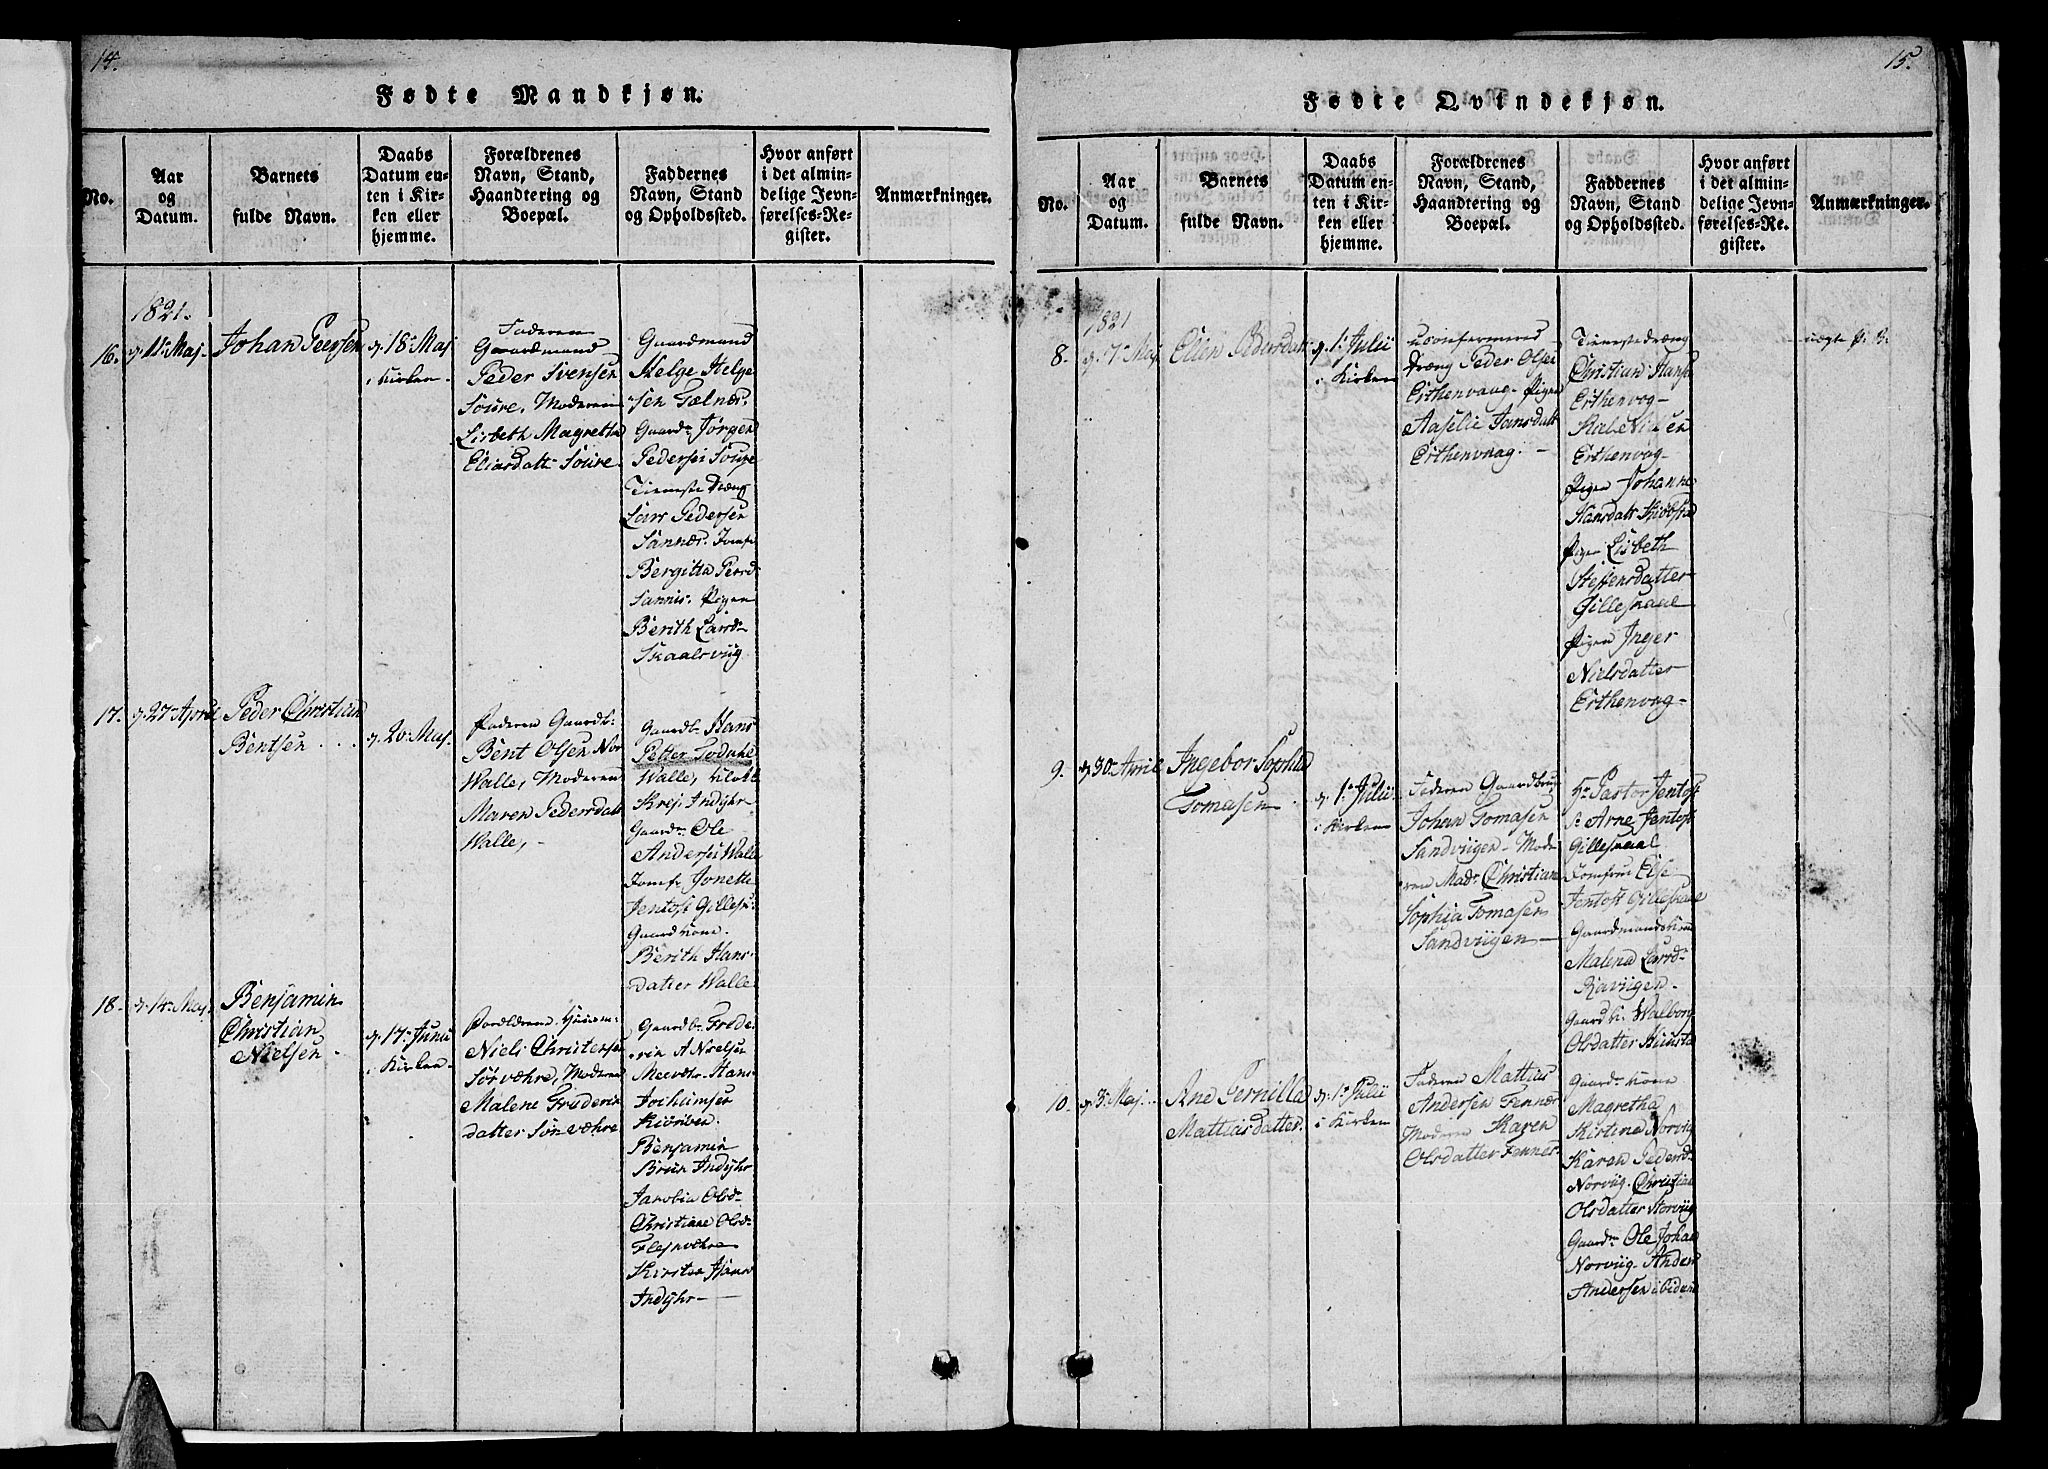 14.
Fødte Mandkjøn.
No.
Aar
og
Datum.
Barnets
fulde Navn.
Daabs
Datum en-
ten i Kir-
ken eller
hjemme.
Forældrenes
Navn, Stand,
Haandtering og
Boepæl.
Faddernes
Navn, Stand
og Opholdssted.
Hvor anført
i det almin-
delige Jevn-
førelses-Re-
gister.
Anmærkninger.
1821.
16.
d. 11te Maj.
Johan Peersen
d. 18de Maj
i Kirken.
Faderen
Gaardmand
Peder Svensen
Soure, Moderen
Lisbeth Magretha
Eliasdatt. Soure.
Gaardmand
Helge Helge
sen Telnæs.
Gaardm. Jørgen
Pedersen Soure
Tieneste Dreng
Lars Pedersen
Sannæs. Jomfr.
Bergitta Persd
Sannis. Pigen
Berith Larsd.
Skaalsviig
17.
d. 27de April
Peder Christian
Bentsen
d. 20. Maj.
Faderen Gaardb.
Bent Olsen Nor
Walle, Moderen
Maren Pedersdatt
Walle,
Gaardb. Hans
Petter Todahl
Walle,
Skrej. Indÿhr
Gaardm. Ole
Andersen Walle
Jomfr. Jonette
Jentoft Gillesk.
Gaardkone.
Berith Hans-
datter Walle
18.
d. 14de Maj.
Benjamin
Christian
Nielsen.
d. 17de Junii
i Kirken.
Forældrene. Huusm.
Niels Christensen
Sørværhe, Moderen
Malene Frederik
datter Sørværhe
Gaardb. Frede-
rik A Nielsen
Meevær. Hans
Jochumsen
Kiørviken.
Benjamin
Bruun Indÿhr
Jacobia Olsd.
Christiane Olsd.
Fleskværhe
Kirsten Hansd
Indÿhr
15.
Fødte Qvindekjøn.
No.
Aar
og
Datum.
Barnets
fulde Navn.
Daabs
Datum en-
ten i Kir-
ken eller
hjemme.
Forældrenes
Navn, Stand,
Haandtering og
Boepæl.
Faddernes
Navn, Stand
og Opholdssted.
Hvor anført
i det almin-
delige Jevn-
førelses-Re-
gister.
Anmærkninger.
1821
8.
d. 7de Maj
Ellen Pedersdatt.
d. 1ste Julii
i Kirken
uconfermered
Dræng Peder Olsen
Erthenvaag. Pigen
Aaselie Jansdatt
Erthenvaag.
Tienestedræng
Christian Hansen
Erthenvog
Nilsen
Erthenvog
Pigen Johanne
Hansdatt.
Pigen Lisbeth
Steffensdatter
Gilleskaal
Pigen Inger
Nielsdatter
Erthenvog
uægte
9.
d. 30te April
Ingebor Sophia
Tomasen
d. 1ste Julii
i Kirken
Faderen Gaardbrug
Johan Tomasen
Sandviigen. Mode-
ren Mad. Christian
Sophia Tomasen
Sandviigen
Hr Pastor Jentoft
Sr. Arne Jentoft
Gilleskaal
Jomfrue Else
Jentoft Gilleskaal
Gaardmandskone
Malena Larsd.
Raviigen.
Gaardk. Walbor
Olsdatter
10.
d. 3. Maj.
Ane Pernilla
Mattiasdatter.
d. 1ste Julii
i Kirken
Faderen Mattias
Andersen Fennæs
Moderen Karen
Olsdatter Fennes.
Gaardm. kone
Magretha
Kirstina Norviig
Karen Pedersd.
Norviig. Christian
Olsdatter Norviig
Gaardm. Ole Johan
Norviig. Anders
Andersen ibidem